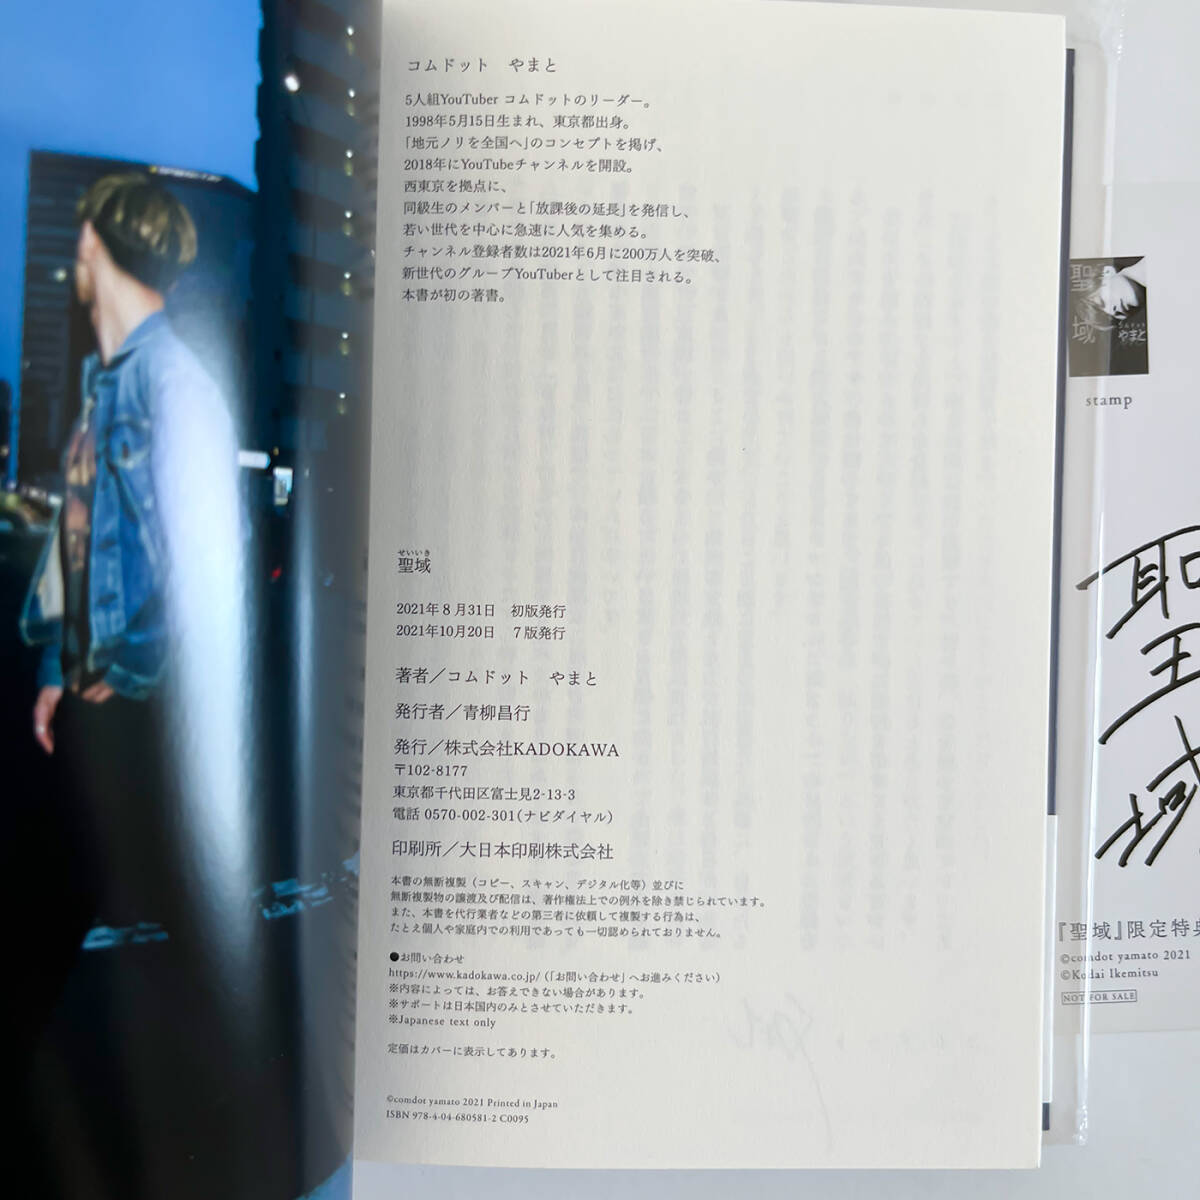 コムドット　やまと
5人組YouTuber コムドットのリーダー。
1998年5月15日生まれ、東京都出身。
「地元ノリを全国へ」のコンセプトを掲げ、
2018年にYouTubeチャンネルを開設。
西東京を拠点に、
同級生のメンバーと「放課後の延長」を発信し、
若い世代を中心に急速に人気を集める。
チャンネル登録者数は2021年6月に200万人を突破、
新世代のグループYouTuberとして注目される。
本書が初の著書。
せいいき
聖域
2021年8月31日　初版発行
2021年10月20日　7版発行
著者／コムドット　やまと
発行者／青柳昌行
発行／株式会社KADOKAWA
〒102-8177
東京都千代田区富士見2-13-3
電話 0570-002-301(ナビダイヤル)
印刷所／大日本印刷株式会社
本書の無断複製（コピー、スキャン、デジタル化等）並びに
無断複製物の譲渡及び配信は、著作権法上での例外を除き禁じられています。
また、本書を代行業者などの第三者に依頼して複製する行為は、
たとえ個人や家庭内での利用であっても一切認められておりません。
●お問い合わせ
https://www.kadokawa.co.jp/（「お問い合わせ」へお進みください）
※内容によっては、お答えできない場合があります。
※サポートは日本国内のみとさせていただきます。
※Japanese text only
定価はカバーに表示してあります。
©comdot yamato 2021 Printed in Japan
ISBN 978-4-04-680581-2 C0095
聖域
コムドット
やまと
stamp
聖域
『聖域』限定特典
©comdot yamato 2021
©Kodai Ikemitsu
NOT FOR SALE